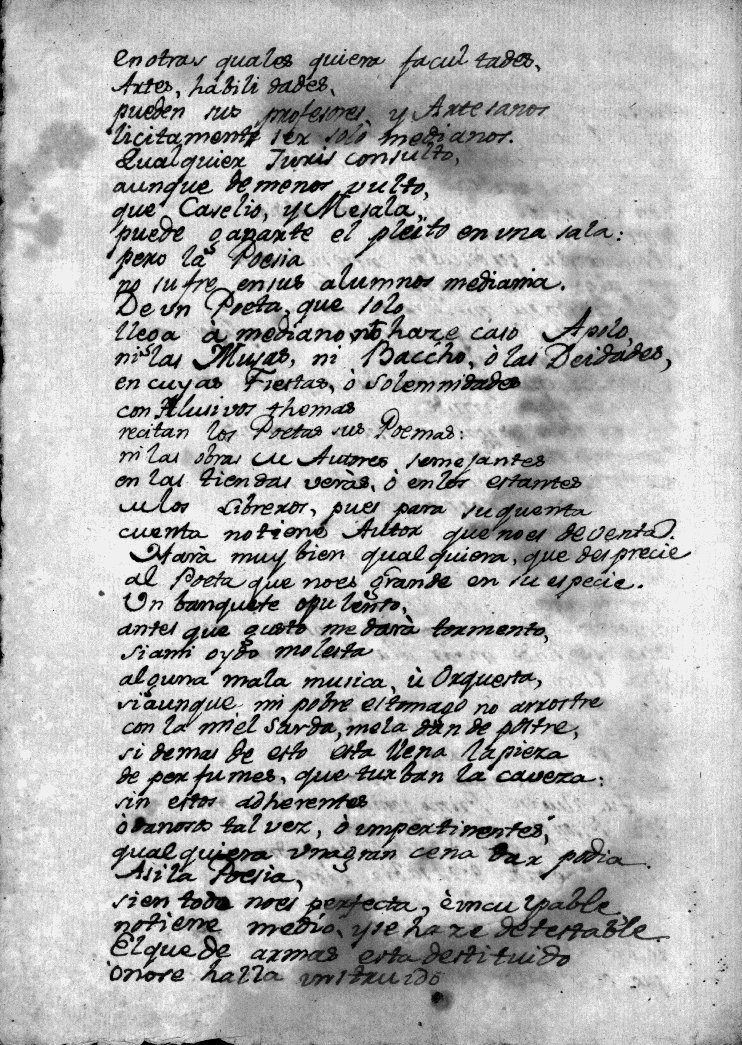 en otras quales quiera facultades,
Artes, habilidades,
pueden sus profesores, y Artesanos
licitamente ser solo medianos.
Qualquier Jurisconsulto,
aunque de menos vulto,
que Caselio, y Mesala,
puede ganarte el pleito en una sala:
pero la Poesia
no sufre en sus alumnos mediania.
De un Poeta, que solo
llega à mediano, no haze caso Apolo,
ni las Musas, ni Baccho, ò las Deidades,
en cuyas Fiestas, ò solemnidades
con alusivos themas
recitan los Poetas sus Poemas:
ni las obras de Autores semejantes
en las tiendas veràs, ò en los estantes
de los Libreros, pues para su quenta
cuenta no tiene Autor que no es de venta.
Harà muy bien qualquiera, que desprecie
al Poeta que no es grande en su especie.
Un banquete opulento,
antes que gusto me darà tormento,
si a mi oydo molesta
alguna mala musica, ù Orquesta,
si aunque mi pobre estomago no arrostre
con la miel Sarda, me la dan de postre,
si demas de esto esta llena la pieza
de perfumes, que turban la caveza:
sin estos adherentes
ò vanos tal vez, ò impertinentes,
qualquiera una gran cena dar podia.
Asi la Poesia,
si en todo no es perfecta, è inculpable
no tiene medio, y se haze detestable.
El que de armas esta destituido
ò no se halla instruido